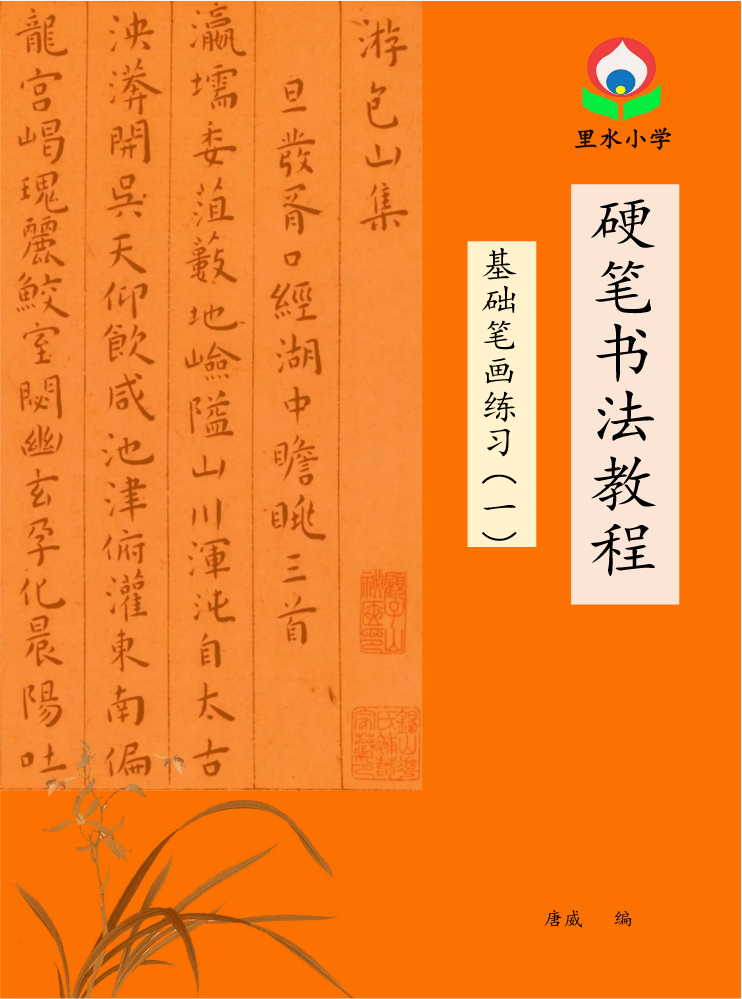 里水小学
硬笔书法教程
基础笔画练习（一）
游包山集
旦發胥口經湖中瞻眺三首
瀛壖委菹藪地嶮隘山川渾沌自太古
泱漭開吳天仰飲咸池津俯灌東南偏
龍宮嵑瑰麗鮫室閟幽玄孕化晨陽吐
唐威 编